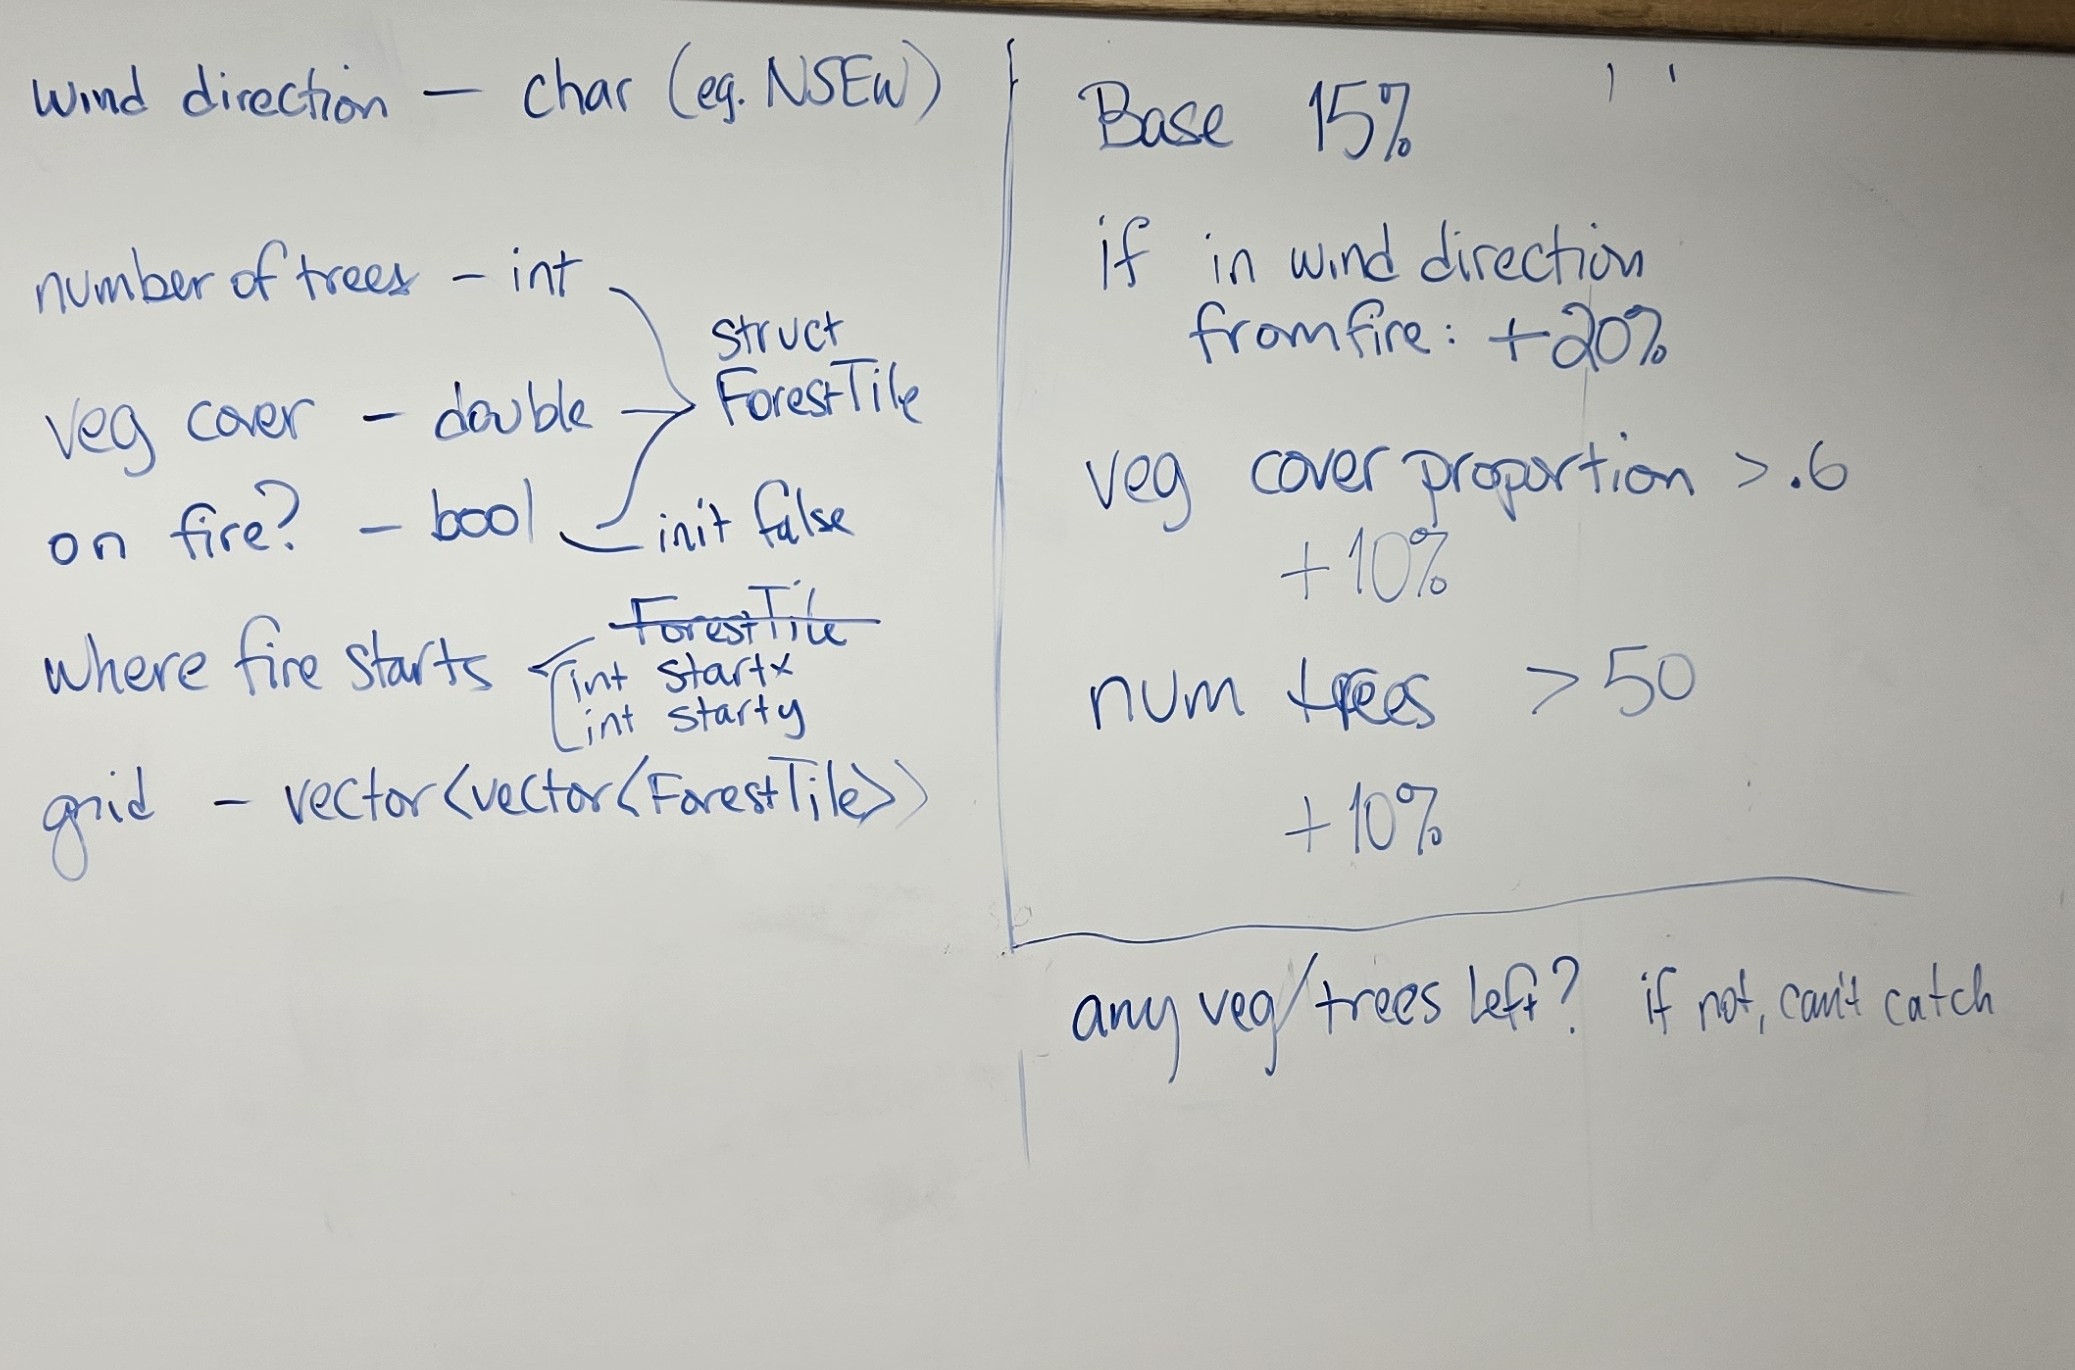 wind direction – char (eg. NSEW)
number of trees – int
struct
ForestTile
veg cover – double
on fire? – bool
init false
ForestTile
where fire starts
int startx
int starty
grid – vector<vector<ForestTile>>
Base 15%
if in wind direction
from fire: +20%
veg cover proportion > .6
+10%
num trees > 50
+10%
any veg/trees left? if not, can't catch